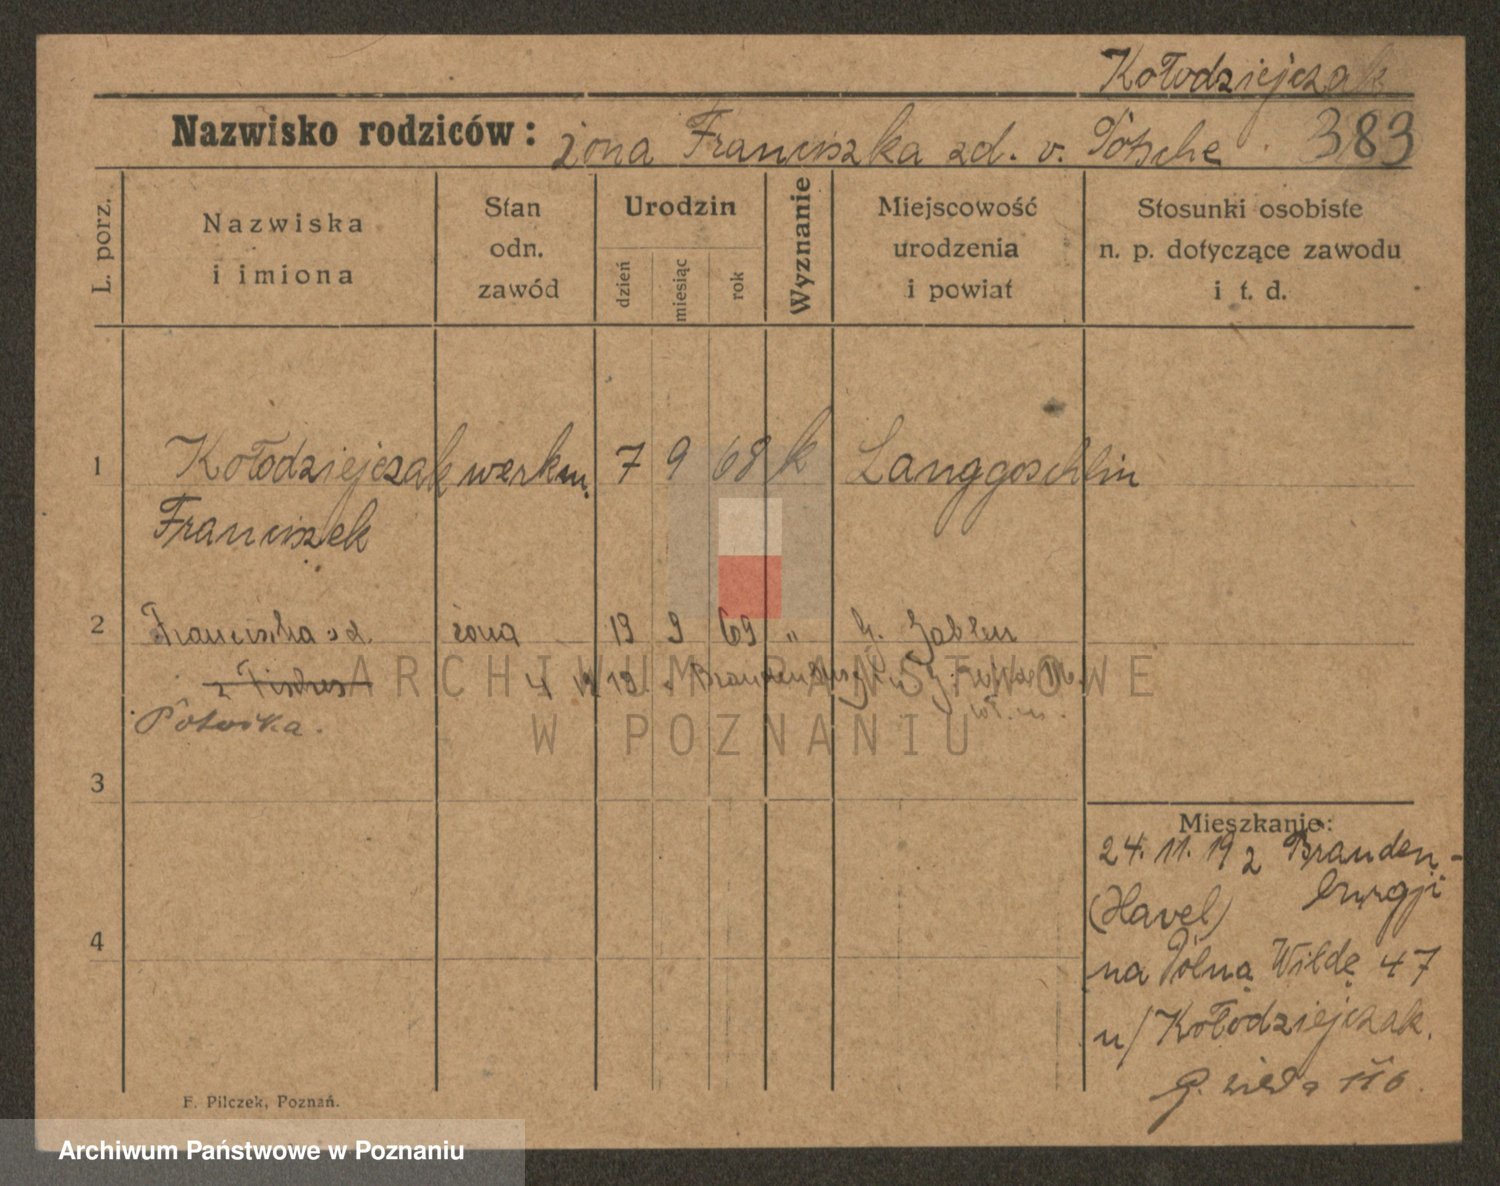 Kołodziejczak
Nazwisko rodziców: żona Franciszka zd. v. Pótsche 383
L. porz.
Nazwiska
i imiona
Stan
odn.
zawód
Urodzin
dzień
miesiąc
rok
Wyznanie
Miejscowość
urodzenia
i powiat
Stosunki osobiste
n. p. dotyczące zawodu
i t. d.
1 Kołodziejczak werkm. 7 9 68 k Langgoschlin
Franciszek
2 Franciszka zd. żona 19 9 69 "
ARCHIWUM PAŃSTWOWE
W POZNANIU
3
Mieszkanie:
24. 11. 19 z Branden-
(Havel) burgji
4
na Polną Wildę 47
u/ Kołodziejczak.
G. Wilda 116.
F. Pilczek, Poznań.
Archiwum Państwowe w Poznaniu